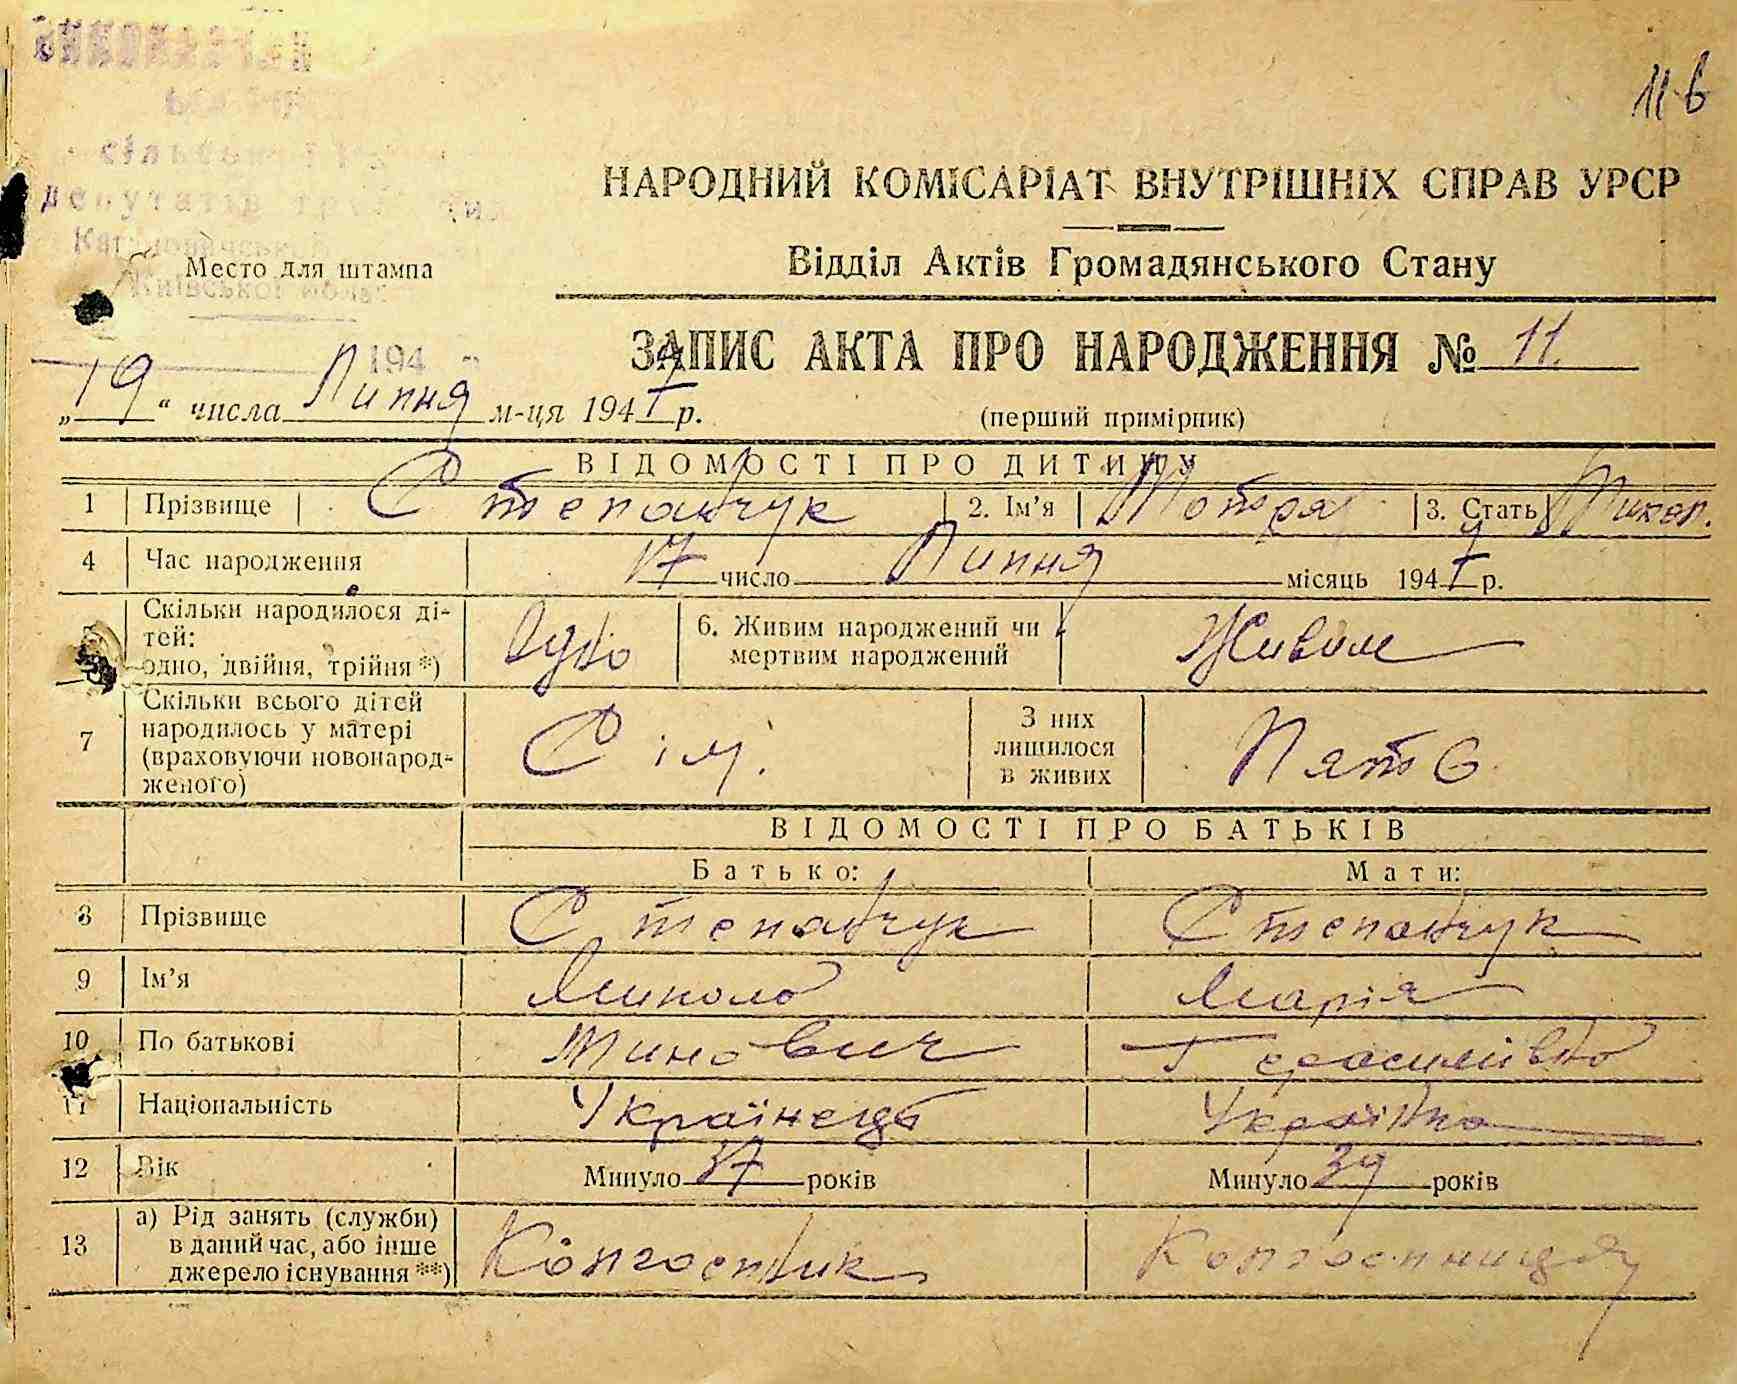 11 в
сільської
депутатів трудящих
Кагановичського
Київської області
194
НАРОДНИЙ КОМІСАРІАТ ВНУТРІШНІХ СПРАВ УРСР
Відділ Актів Громадянського Стану
Место для штампа
ЗАПИС АКТА ПРО НАРОДЖЕННЯ № 11.
„19“ числа Липня м-ця 194 р.
(перший примірник)
ВІДОМОСТІ ПРО ДИТИНУ
1 Прізвище Степанчук 2. Ім'я Мотря 3. Стать
4 Час народження 17 число Липня місяць 194 р.
Скільки народилося ді-
тей:
одно, двійня, трійня *) Одно 6. Живим народжений чи
мертвим народжений Живим
7 Скільки всього дітей
народилось у матері
(враховуючи новонарод-
женого) Сім. З них
лишилося
в живих Пятю
ВІДОМОСТІ ПРО БАТЬКІВ
Батько: Мати:
8 Прізвище Степанчук Степанчук
9 Ім'я Микола Марія
10 По батькові Минович Герасимівна
11 Національність Українець Українка
12 Вік Минуло 37 років Минуло 39 років
13 а) Рід занять (служби)
в даний час, або інше
джерело існування **) Колгоспник Колгоспниця